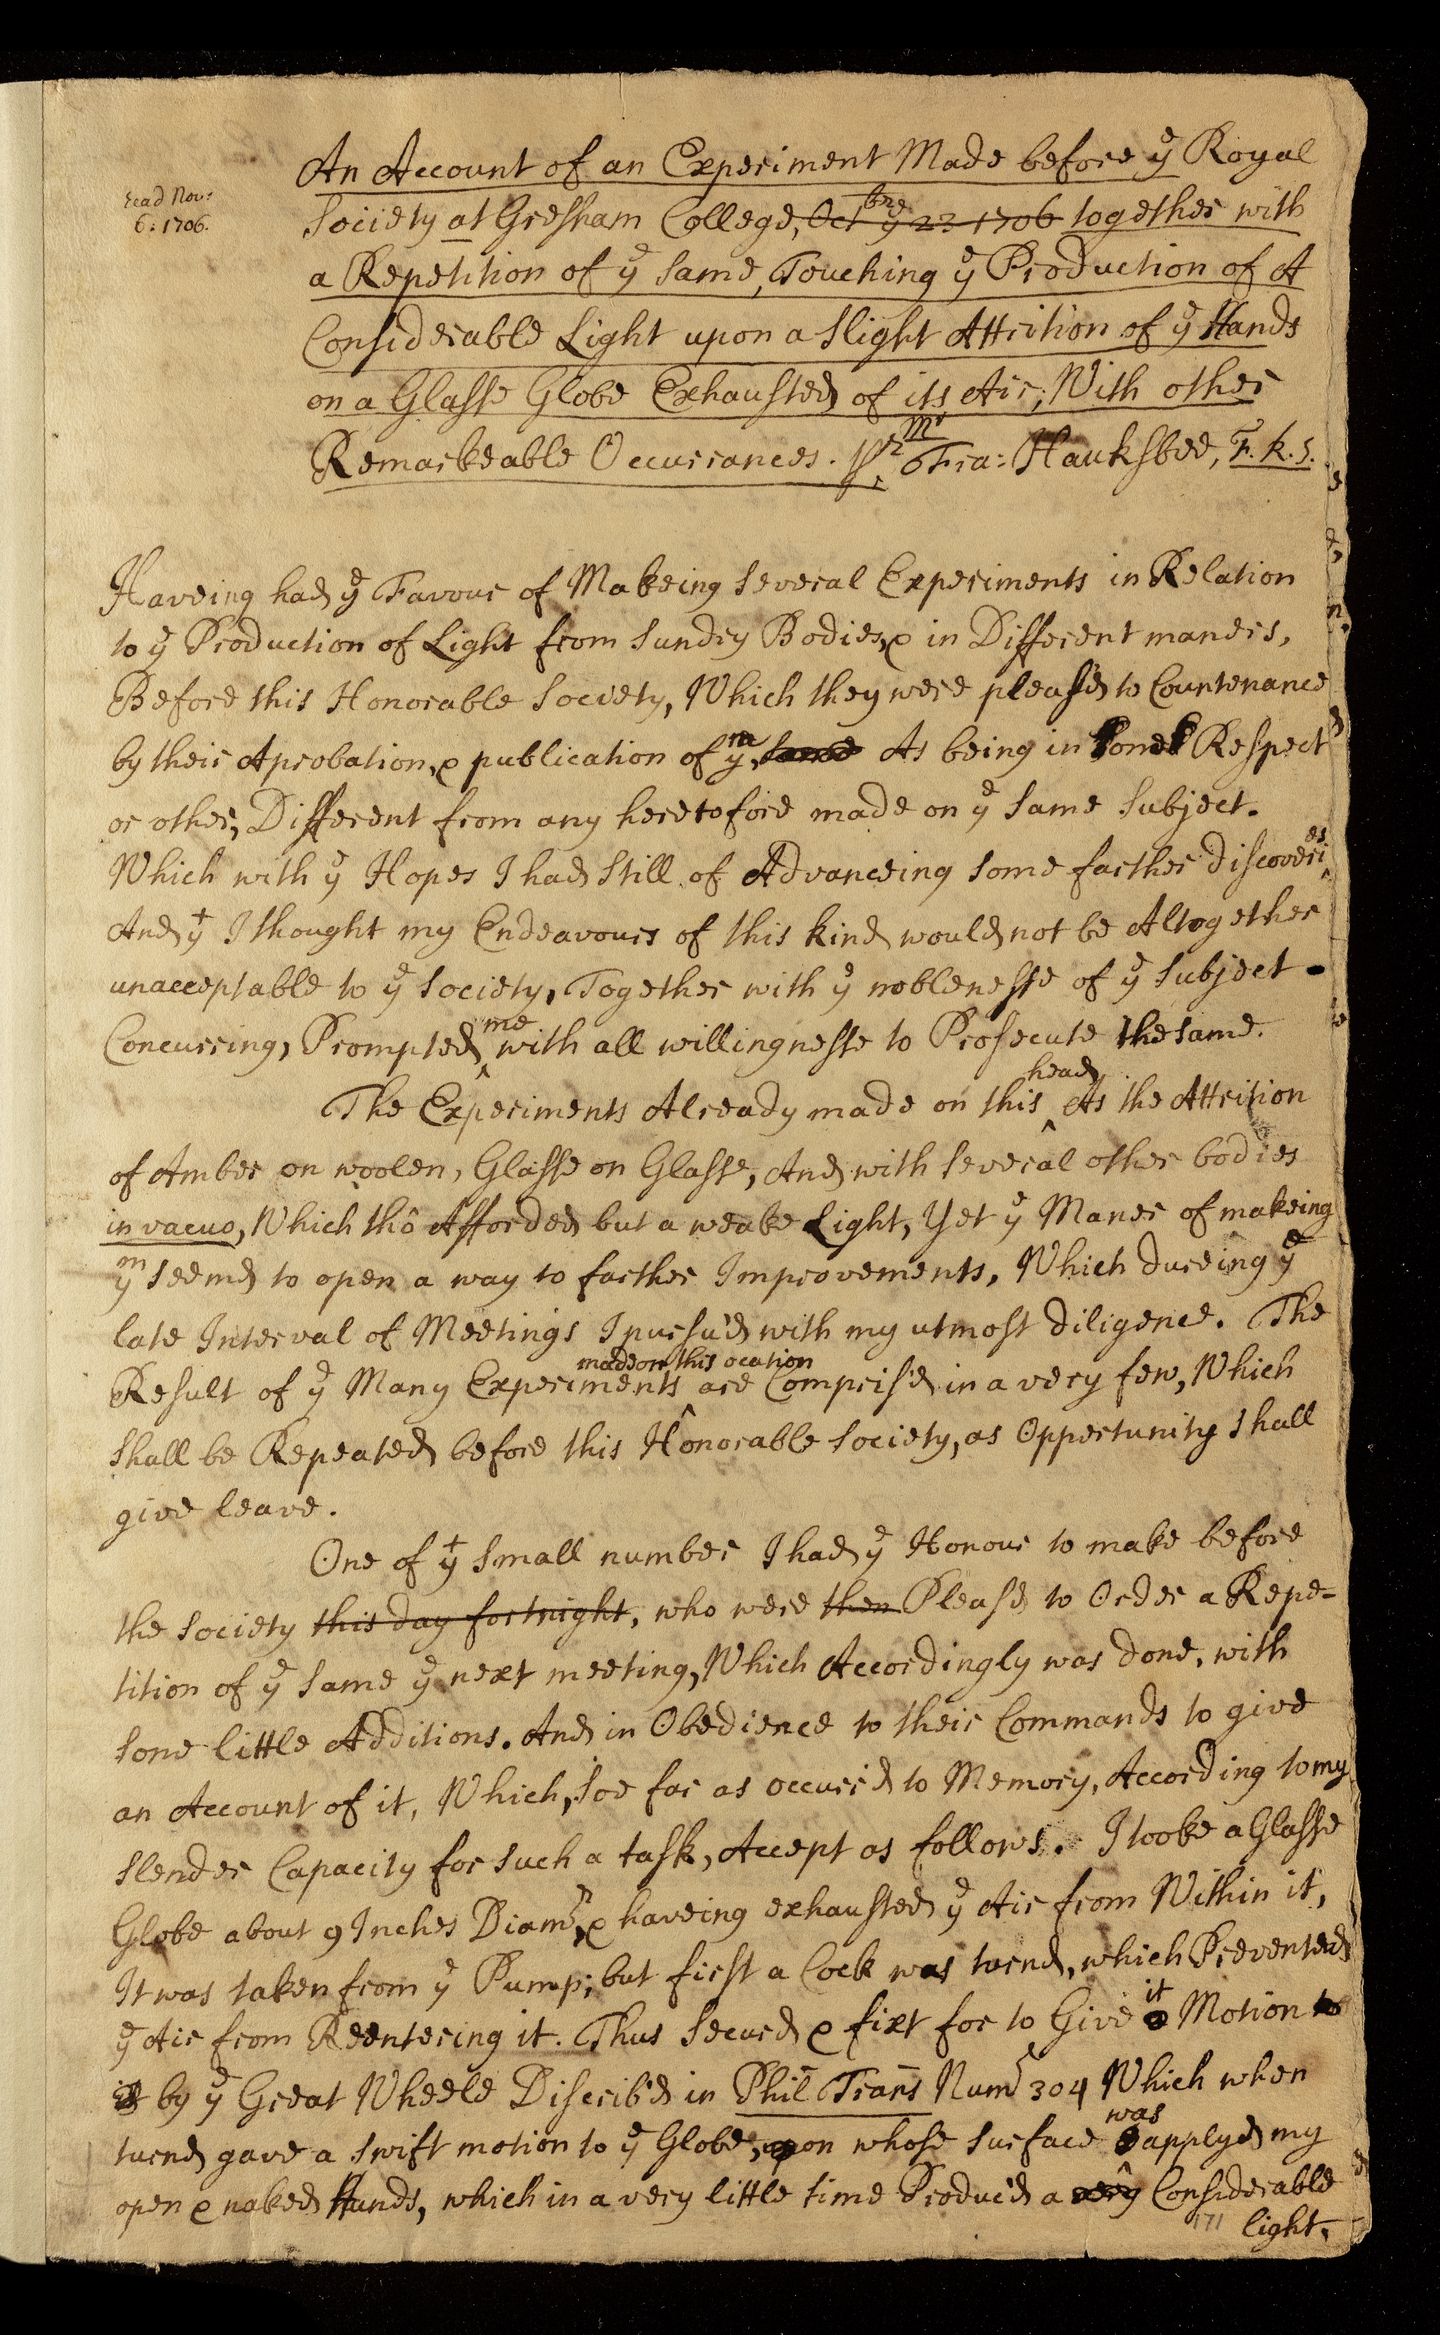 read Nov:
6: 1706.
An Account of an Experiment Made before yᵉ Royal
Society at Gresham College, Octᵇʳᵉ yᵉ 23 1706 together with
a Repetition of yᵉ same, Touching yᵉ Production of A
Considerable Light upon a slight Attrition of yᵉ Hands
on a Glasse Globe Exhausted of its Air; With other
Remarkeable Occurrances. pʳ Mʳ Fra: Hauksbee, F.R.S.
Haveing had yᵉ Favour of Makeing several Experiments in Relation
to yᵉ Production of Light from sundry Bodies, & in Different maners,
Before this Honorable Society, Which they were pleas'd to Countenance
by their Aprobation, & publication of yᵐ, same As being in some Respect
or other, Different from any heretofore made on yᵉ same subject.
Which with yᵉ Hopes I had still of Advanceing some farther discoveries
And yᵗ I thought my Endeavours of this kind would not be Altogether
unacceptable to yᵉ Society, Together with yᵉ noblenesse of yᵉ subject
Concurring, Prompted me with all willingnesse to Prosecute the same.
The Experiments Already made on this head As the Attrition
of Amber on woolen, Glasse on Glasse, And with several other bodies
in vacuo, Which thô Afforded but a weake Light, Yet yᵉ Maner of makeing
yᵐ seem'd to open a way to farther Improvements, Which dureing yᵉ
late Interval of Meetings I pursu'd with my utmost diligence. The
Result of yᵉ Many Experiments made on this ocation are Compris'd in a very few, Which
shall be Repeated before this Honorable Society, as Oppertunity shall
give leave.
One of yᵗ small number I had yᵉ Honour to make before
the Society this day fortnight, who were then Pleas'd to Order a Repe-
tition of yᵉ same yᵉ next meeting, Which Accordingly was done, with
some little Additions. And in Obedience to their Commands to give
an Account of it, Which, soe far as occurr'd to Memory, According to my
slender Capacity for such a task, Accept as follows. I tooke a Glasse
Globe about 9 Inches Diamʳ, & haveing exhausted yᵉ Air from Within it,
It was taken from yᵉ Pump; but first a Cock was turnd, which Prevented
yᵉ Air from Reentering it. Thus secur'd & fixt for to Give it a Motion to
it by yᵉ Great Wheele Discrib'd in Phil Trans Numʳ 304 Which when
turnd gave a swift motion to yᵉ Globe, upon whose surface was apply'd my
open & naked Hands, which in a very little time Produc'd a very Considerable
171
light,